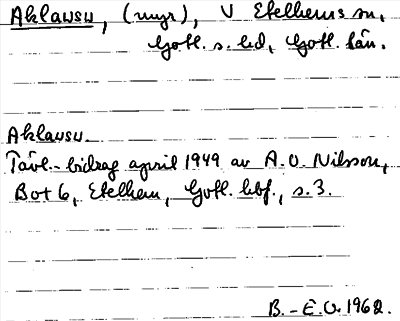 Aklausu, (myr), V Etelhems sn,
Gotl. s. hd, Gotl. län.
Aklausu.
Tävl.-bidrag april 1949 av A.O. Nilsson,
Bot 6, Etelhem, Gotl. hbf., s. 3.
B.-E.O. 1962.